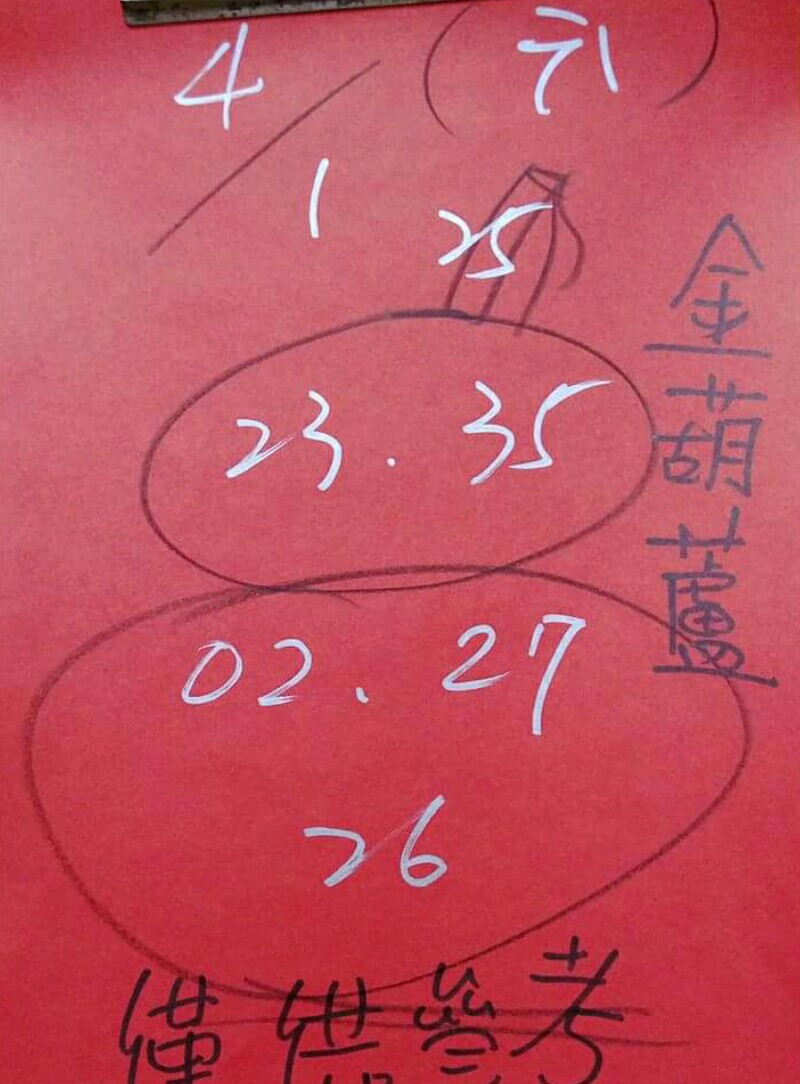 4/1 (六)
25
23.35
02.27
26
金葫蘆
僅供參考